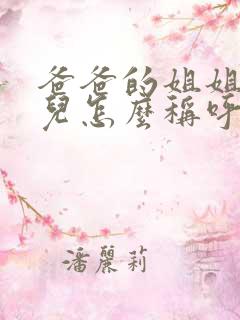 爸爸的姐姐
兒怎麼稱呼
潘麗莉